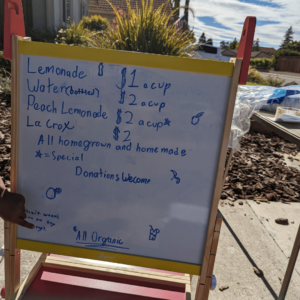 Lemonade $1 a cup
Water (bottled) $2 a cup
Peach Lemonade $2 a cup*
La Croix $2
All homegrown and homemade
*=Special
Donations Welcome
*All Organic